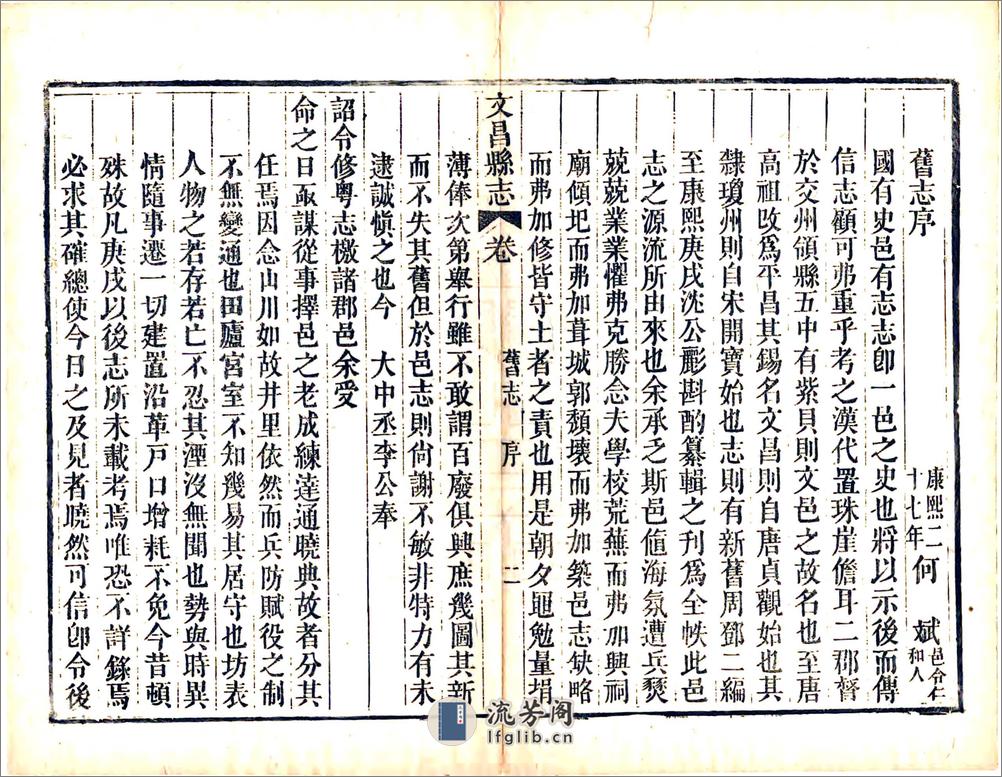 舊志序
康熙二十七年 何 斌 邑令仁和人
國有史邑有志志卽一邑之史也將以示後而傳
信志顧可弗重乎考之漢代置珠崖儋耳二郡督
於交州領縣五中有紫貝則文邑之故名也至唐
高祖改爲平昌其錫名文昌則自唐貞觀始也其
隸瓊州則自宋開寶始也志則有新舊周鄧二編
至康熙庚戌沈公彲斟酌纂輯之刊爲全帙此邑
志之源流所由來也余承乏斯邑値海氛遭兵燹
兢兢業業懼弗克勝念夫學校荒蕪而弗加興祠
廟傾圯而弗加葺城郭頹壞而弗加築邑志缺略
而弗加修皆守土者之責也用是朝夕黽勉量捐
文昌縣志 卷 舊志 序 二
薄俸次第舉行雖不敢謂百廢俱興庶幾圖其新
而不失其舊但於邑志則尙謝不敏非特力有未
逮誠愼之也今 大中丞李公奉
詔令修粵志檄諸郡邑余受
命之日亟謀從事擇邑之老成練達通曉典故者分其
任焉因念山川如故井里依然而兵防賦役之制
不無變通也田廬宮室不知幾易其居守也坊表
人物之若存若亡不忍其湮沒無聞也勢與時異
情隨事遷一切建置沿革戶口增耗不免今昔頓
殊故凡庚戌以後志所未載考焉唯恐不詳錄焉
必求其確總使今日之及見者曉然可信卽令後
流芳阁
lfglib.cn